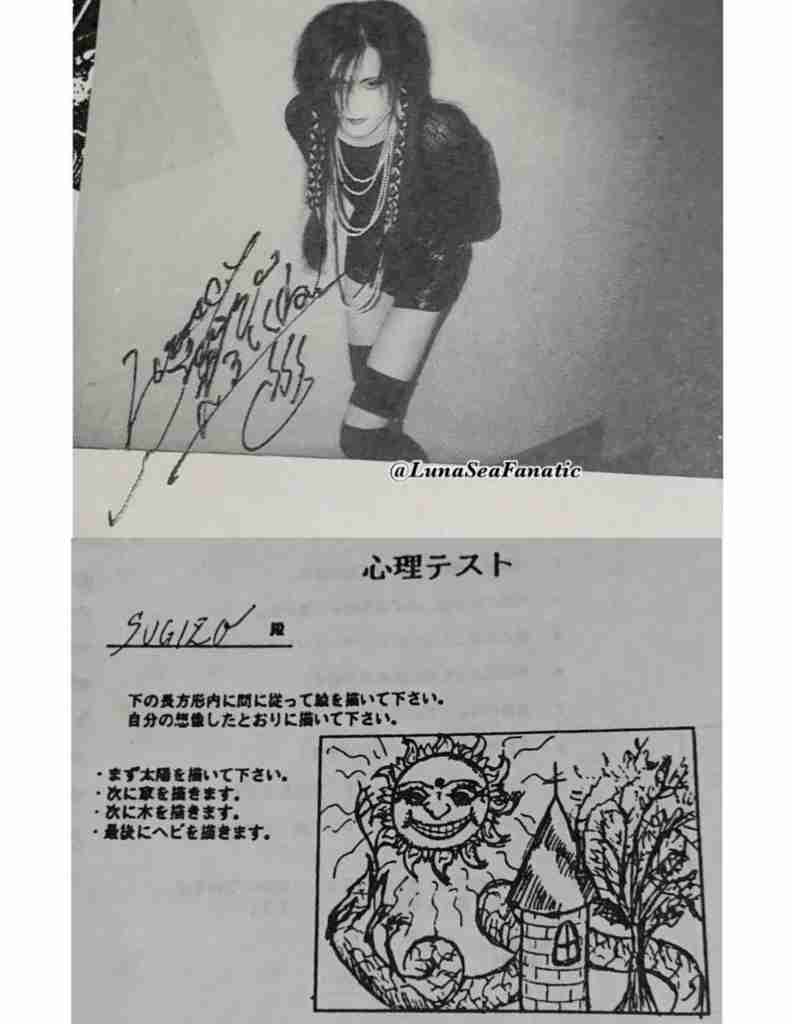 @LunaSeaFanatic
心理テスト
SUGIZO 殿
下の長方形内に問に従って絵を描いて下さい。
自分の想像したとおりに描いて下さい。
・まず太陽を描いて下さい。
・次に家を描きます。
・次に木を描きます。
・最後にヘビを描きます。